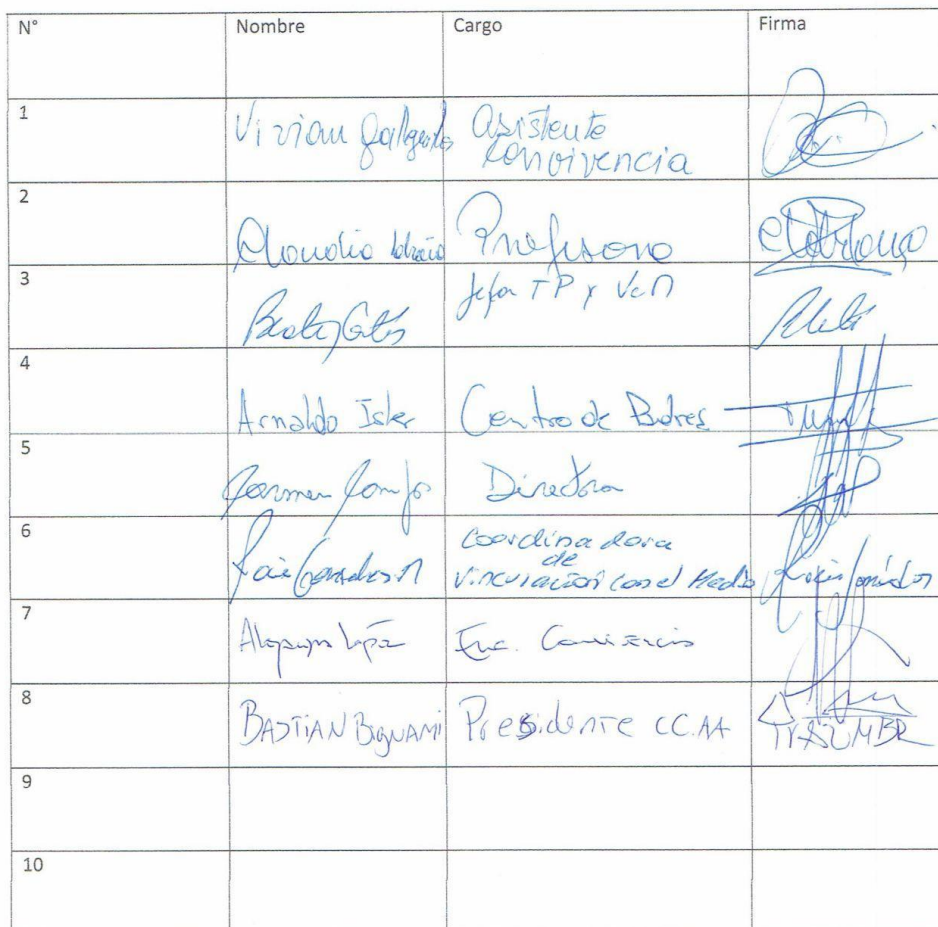 N° Nombre Cargo Firma
1 Vivian Gallegos Asistente
Convivencia
2 Claudia Profesora
3 Jefa TP y VcM
4 Arnaldo Isler Centro de Padres
5 Carmen Directora
6 González M Coordinadora
de
Vinculación con el Medio
7 Alejandra López Enc. Convivencia
8 BASTIAN BIGNAMI Presidente CC.AA
9
10